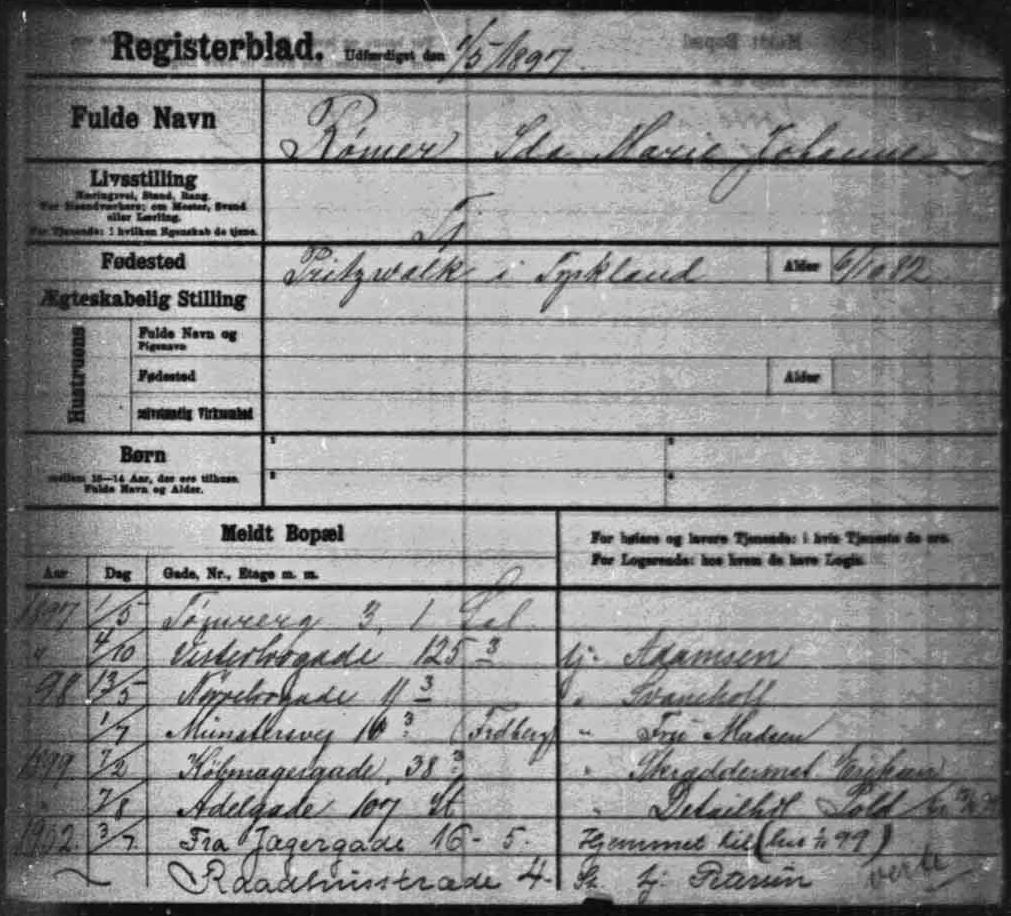 Registerblad. Udfærdiget den 1/5 1897.
Fulde Navn Rømer Ida Marie Johanne
Livsstilling
Næringsvei, Stand, Rang.
For Haandværkere: om Mester, Svend
eller Lærling.
For Tjenende: i hvilken Egenskab de tjene.
Fødested Pritzwalk i Tyskland Alder 6/10 82
Ægteskabelig Stilling
Hustruens
Fulde Navn og
Pigenavn
Fødested Alder
selvstændig Virksomhed
Børn
mellem 10—14 Aar, der ere tilhuse.
Fulde Navn og Alder.
1 2
3 4
Meldt Bopæl
For højere og lavere Tjenende: i hvis Tjeneste de ere.
For Logerende: hos hvem de have Logis.
Aar Dag Gade, Nr., Etage m. m.
1897 1/5 Tømrerg 3, 1 Sal
" 4/10 Vesterbrogade 125 3 tj. Adamsen
98 13/5 Nørrebrogade 11 3 "
1/7 Münstersvej 10 3 (Frdberg) " Frü Madsen
1899 7/2 Købmagergade 38 3 " Skræddermst
" 7/8 Adelgade 107 St " Detailhdl
1902. 3/7 Fra Jægergade 16 - 5. Hjemmet til
Raadhusstræde 4. St. tj. verte